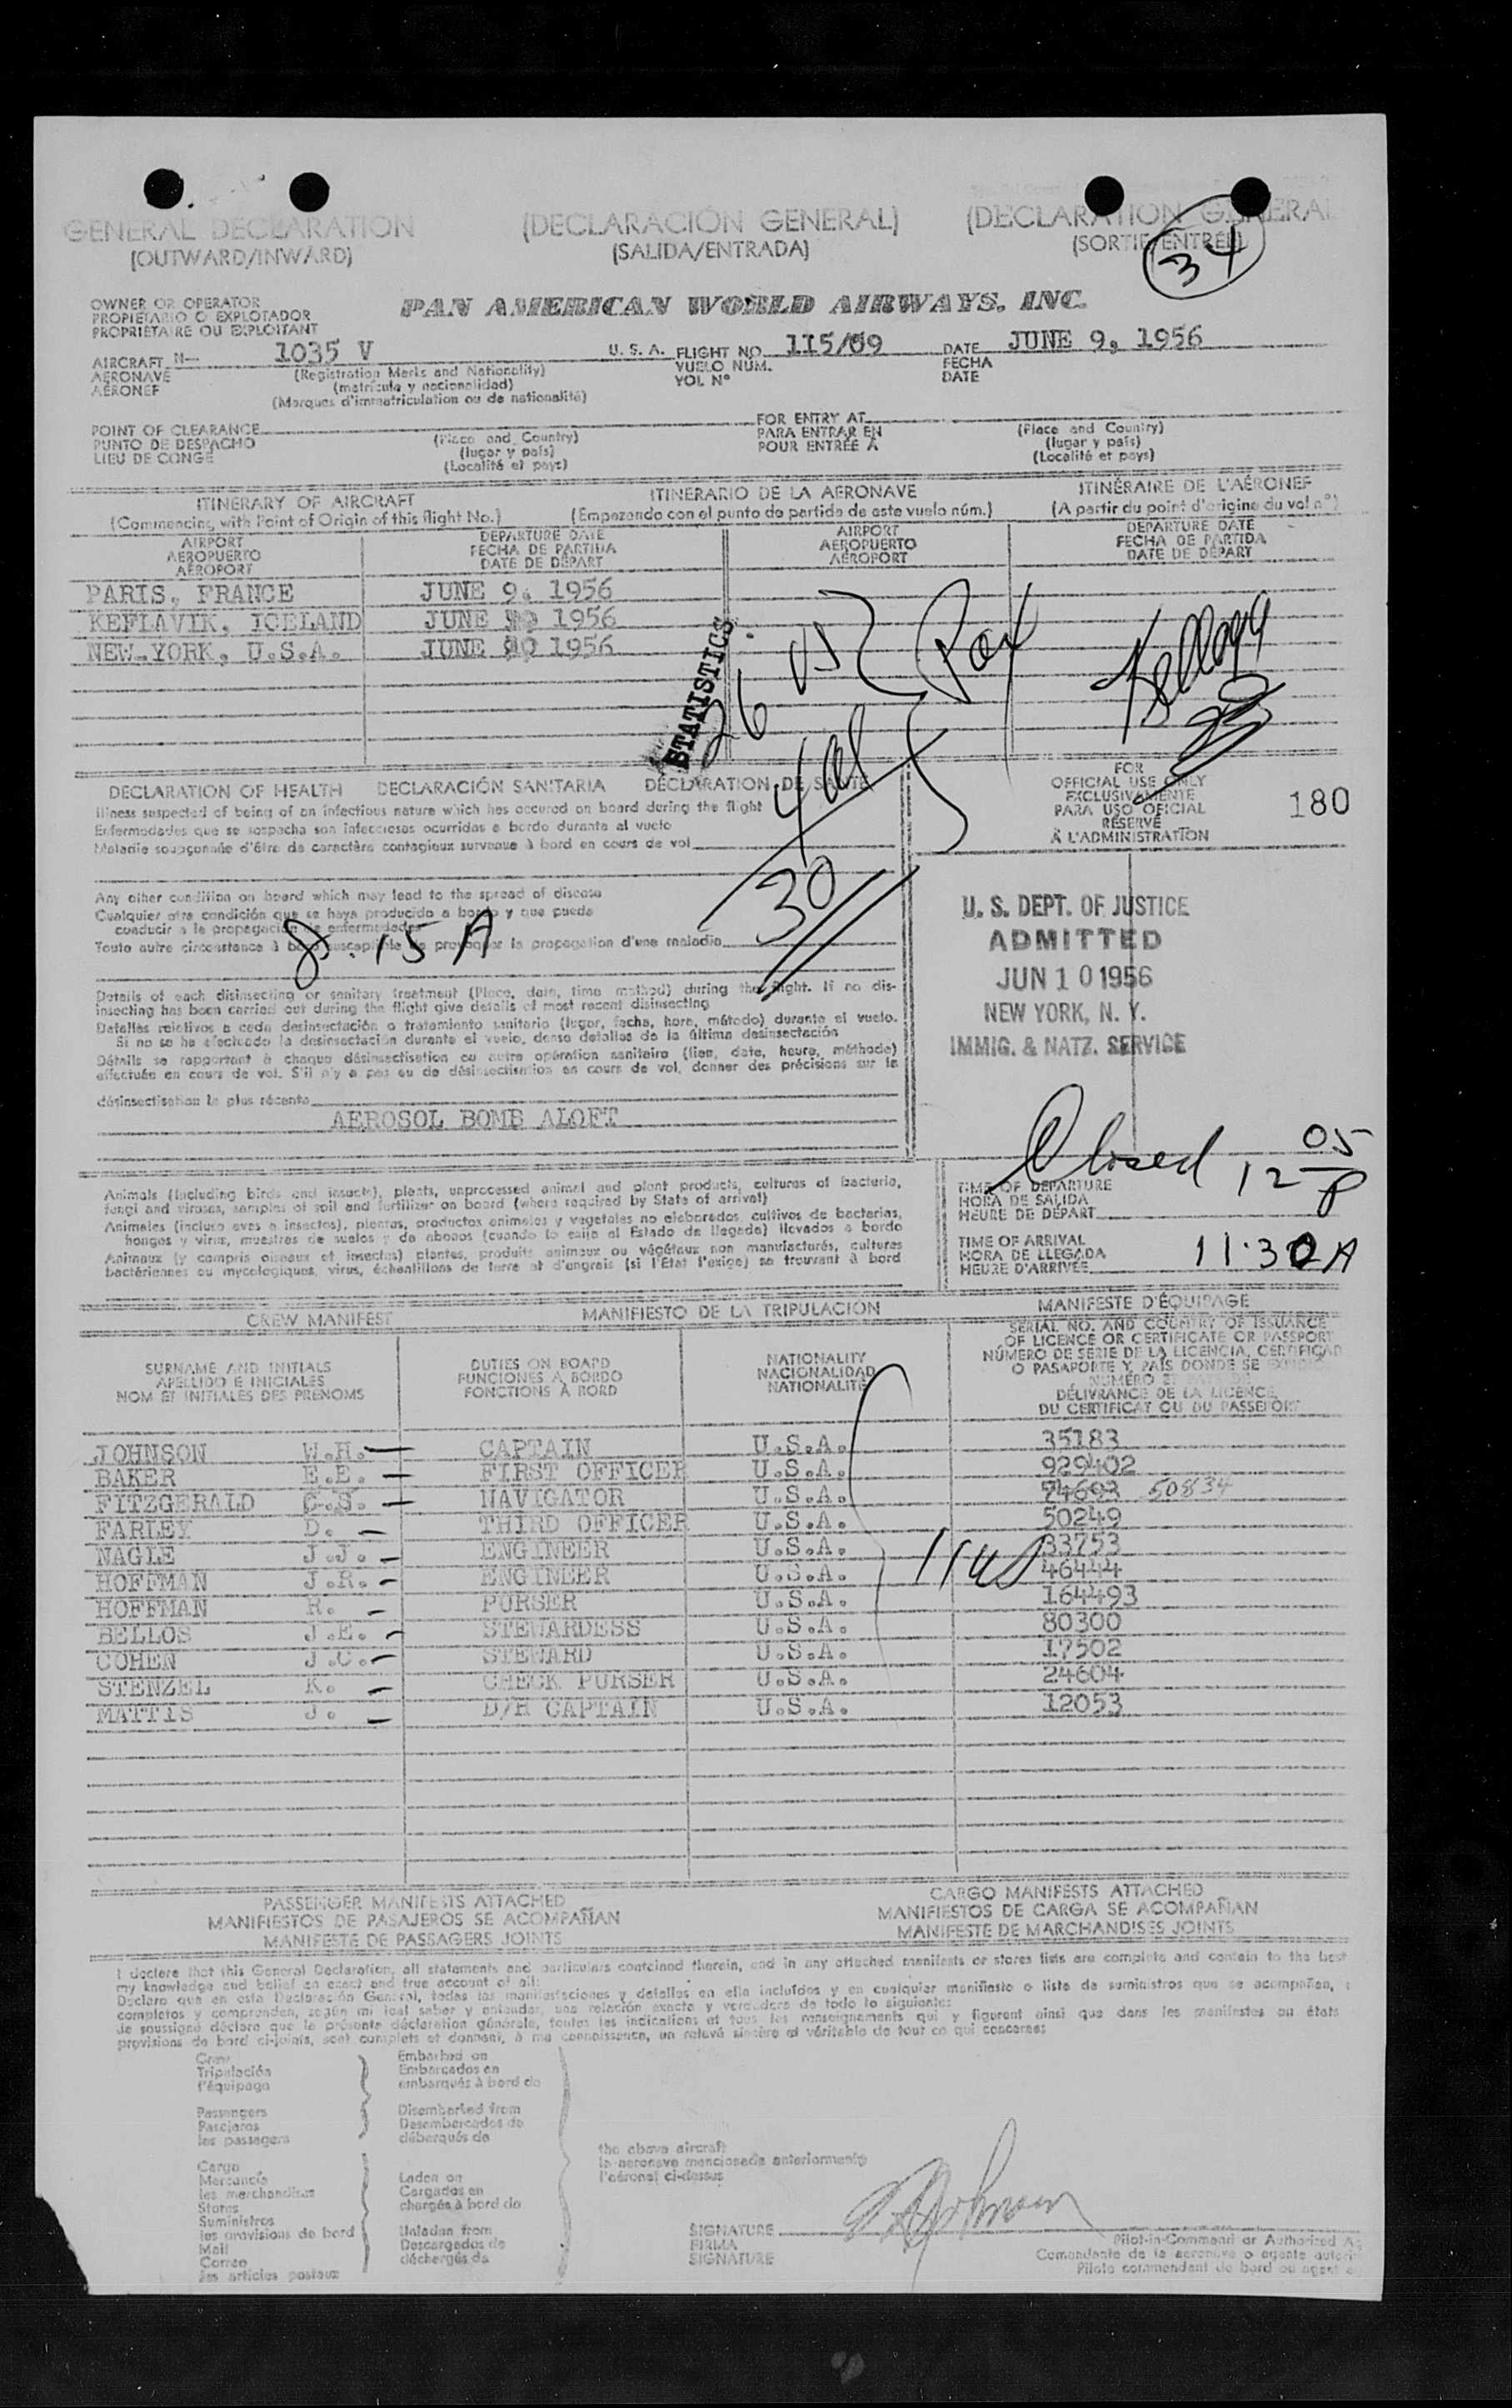 GENERAL DECLARATION (DECLARACIÓN GENERAL) (DECLARATION GENERA
(OUTWARD/INWARD) (SALIDA/ENTRADA) (SORTIE/ENTRÉE)
34
OWNER OR OPERATOR
PROPIETARIO O EXPLOTADOR
PROPRIÉTAIRE OU EXPLOITANT
PAN AMERICAN WORLD AIRWAYS, INC.
AIRCRAFT N— 1035 V U. S. A. FLIGHT NO. 115/09 DATE JUNE 9, 1956
AERONAVE (Registration Marks and Nationality) VUELO NUM. FECHA
AÉRONEF (matrícula y nacionalidad) VOL N° DATE
(Marques d'immatriculation ou de nationalité)
POINT OF CLEARANCE FOR ENTRY AT
PUNTO DE DESPACHO (Place and Country) PARA ENTRAR EN (Place and Country)
LIEU DE CONGÉ (lugar y país) POUR ENTRÉE A (lugar y país)
(Localité et pays) (Localité et pays)
ITINERARY OF AIRCRAFT ITINERARIO DE LA AERONAVE ITINÉRAIRE DE L'AÉRONEF
(Commencing with Point of Origin of this flight No.) (Empezando con el punto de partida de este vuelo núm.) (A partir du point d'origine du vol n°)
AIRPORT DEPARTURE DATE AIRPORT DEPARTURE DATE
AEROPUERTO FECHA DE PARTIDA AEROPUERTO FECHA DE PARTIDA
AÉROPORT DATE DE DÉPART AÉROPORT DATE DE DÉPART
PARIS, FRANCE JUNE 9, 1956
KEFLAVIK, ICELAND JUNE 10 1956
NEW YORK, U.S.A. JUNE 10 1956
STATISTICS
26 US
4 al
30
Pax
Kellogg
DECLARATION OF HEALTH DECLARACIÓN SANITARIA DÉCLARATION DE SANTÉ
Illness suspected of being of an infectious nature which has occured on board during the flight
Enfermedades que se sospecha son infecciosas ocurridas a bordo durante el vuelo
Maladie soupçonnée d'être de caractère contagieux survenue à bord en cours de vol
FOR
OFFICIAL USE ONLY
EXCLUSIVAMENTE
PARA USO OFICIAL
RÉSERVÉ
À L'ADMINISTRATION
180
Any other condition on board which may lead to the spread of disease
Cualquier otra condición que se haya producido a bordo y que pueda
conducir a la propagación de enfermedades
Toute autre circonstance à bord susceptible de provoquer la propagation d'une maladie
8.15 A
U. S. DEPT. OF JUSTICE
ADMITTED
JUN 10 1956
NEW YORK, N. Y.
IMMIG. & NATZ. SERVICE
Details of each disinsecting or sanitary treatment (Place, date, time method) during the flight. If no dis-
insecting has been carried out during the flight give details of most recent disinsecting
Detalles relativos a cada desinsectación o tratamiento sanitario (lugar, fecha, hora, método) durante el vuelo.
Si no se ha efectuado la desinsectación durante el vuelo, dense detalles de la última desinsectación
Détails se rapportant à chaque désinsectisation ou autre opération sanitaire (lieu, date, heure, méthode)
effectuée en cours de vol. S'il n'y a pas eu de désinsectisation en cours de vol, donner des précisions sur la
désinsectisation la plus récente
AEROSOL BOMB ALOFT
Closed 12 05 P
Animals (including birds and insects), plants, unprocessed animal and plant products, cultures of bacteria,
fungi and viruses, samples of soil and fertilizer on board (where required by State of arrival)
Animales (incluso aves e insectos), plantas, productos animales y vegetales no elaborados, cultivos de bacterias,
hongos y virus, muestras de suelos y de abonos (cuando lo exija el Estado de llegada) llevados a bordo
Animaux (y compris oiseaux et insectes) plantes, produits animaux ou végétaux non manufacturés, cultures
bactériennes ou mycologiques, virus, échantillons de terre et d'engrais (si l'Etat l'exige) se trouvant à bord
TIME OF DEPARTURE
HORA DE SALIDA
HEURE DE DÉPART
TIME OF ARRIVAL
HORA DE LLEGADA
HEURE D'ARRIVÉE
11:30A
CREW MANIFEST MANIFIESTO DE LA TRIPULACION MANIFESTE D'ÉQUIPAGE
SURNAME AND INITIALS
APELLIDO E INICIALES
NOM ET INITIALES DES PRENOMS
DUTIES ON BOARD
FUNCIONES A BORDO
FONCTIONS À BORD
NATIONALITY
NACIONALIDAD
NATIONALITÉ
SERIAL NO. AND COUNTRY OF ISSUANCE
OF LICENCE OR CERTIFICATE OR PASSPORT
NÚMERO DE SERIE DE LA LICENCIA, CERTIFICAD
O PASAPORTE Y PAÍS DONDE SE EXPIDIÓ
NUMÉRO ET PAYS DE
DÉLIVRANCE DE LA LICENCE,
DU CERTIFICAT OU DU PASSEPORT
JOHNSON W.H. — CAPTAIN U.S.A. 35183
BAKER E.E. — FIRST OFFICER U.S.A. 929402
FITZGERALD C.S. — NAVIGATOR U.S.A. 74693 50834
FARLEY D. — THIRD OFFICER U.S.A. 50249
NAGLE J.J. — ENGINEER U.S.A. 33753
HOFFMAN J.R. — ENGINEER U.S.A. 46444
HOFFMAN R. — PURSER U.S.A. 164493
BELLOS J.E. — STEWARDESS U.S.A. 80300
COHEN J.C. — STEWARD U.S.A. 17502
STENZEL K. — CHECK PURSER U.S.A. 24604
MATTIS J. — D/H CAPTAIN U.S.A. 12053
11 US
PASSENGER MANIFESTS ATTACHED CARGO MANIFESTS ATTACHED
MANIFIESTOS DE PASAJEROS SE ACOMPAÑAN MANIFIESTOS DE CARGA SE ACOMPAÑAN
MANIFESTE DE PASSAGERS JOINTS MANIFESTE DE MARCHANDISES JOINTS
I declare that this General Declaration, all statements and particulars contained therein, and in any attached manifests or stores lists are complete and contain to the best
my knowledge and belief an exact and true account of all:
Declaro que en esta Declaración General, todas las manifestaciones y detalles en ella incluídos y en cualquier manifiesto o lista de suministros que se acompañan,
completos y comprenden, según mi leal saber y entender, una relación exacta y verdadera de todo lo siguiente:
Je soussigné déclare que la présente déclaration générale, toutes les indications et tous les renseignements qui y figurent ainsi que dans les manifestes ou états
provisions de bord ci-joints, sont complets et donnent, à ma connaissance, un relevé sincère et véritable de tout ce qui concerne:
Crew
Tripulación
l'équipage
Passengers
Pasajeros
les passagers
Cargo
Mercancía
les marchandises
Stores
Suministros
les provisions de bord
Mail
Correo
les articles postaux
Embarked on
Embarcados en
embarqués à bord de
Disembarked from
Desembarcados de
débarqués de
Laden on
Cargados en
chargés à bord de
Unladen from
Descargados de
déchargés de
the above aircraft
la aeronave mencionada anteriormente
l'aéronef ci-dessus
SIGNATURE
FIRMA
SIGNATURE
Johnson
Pilot-in-Command or Authorized Ag
Comandante de la aeronave o agente autori
Pilote commandant de bord ou agent a